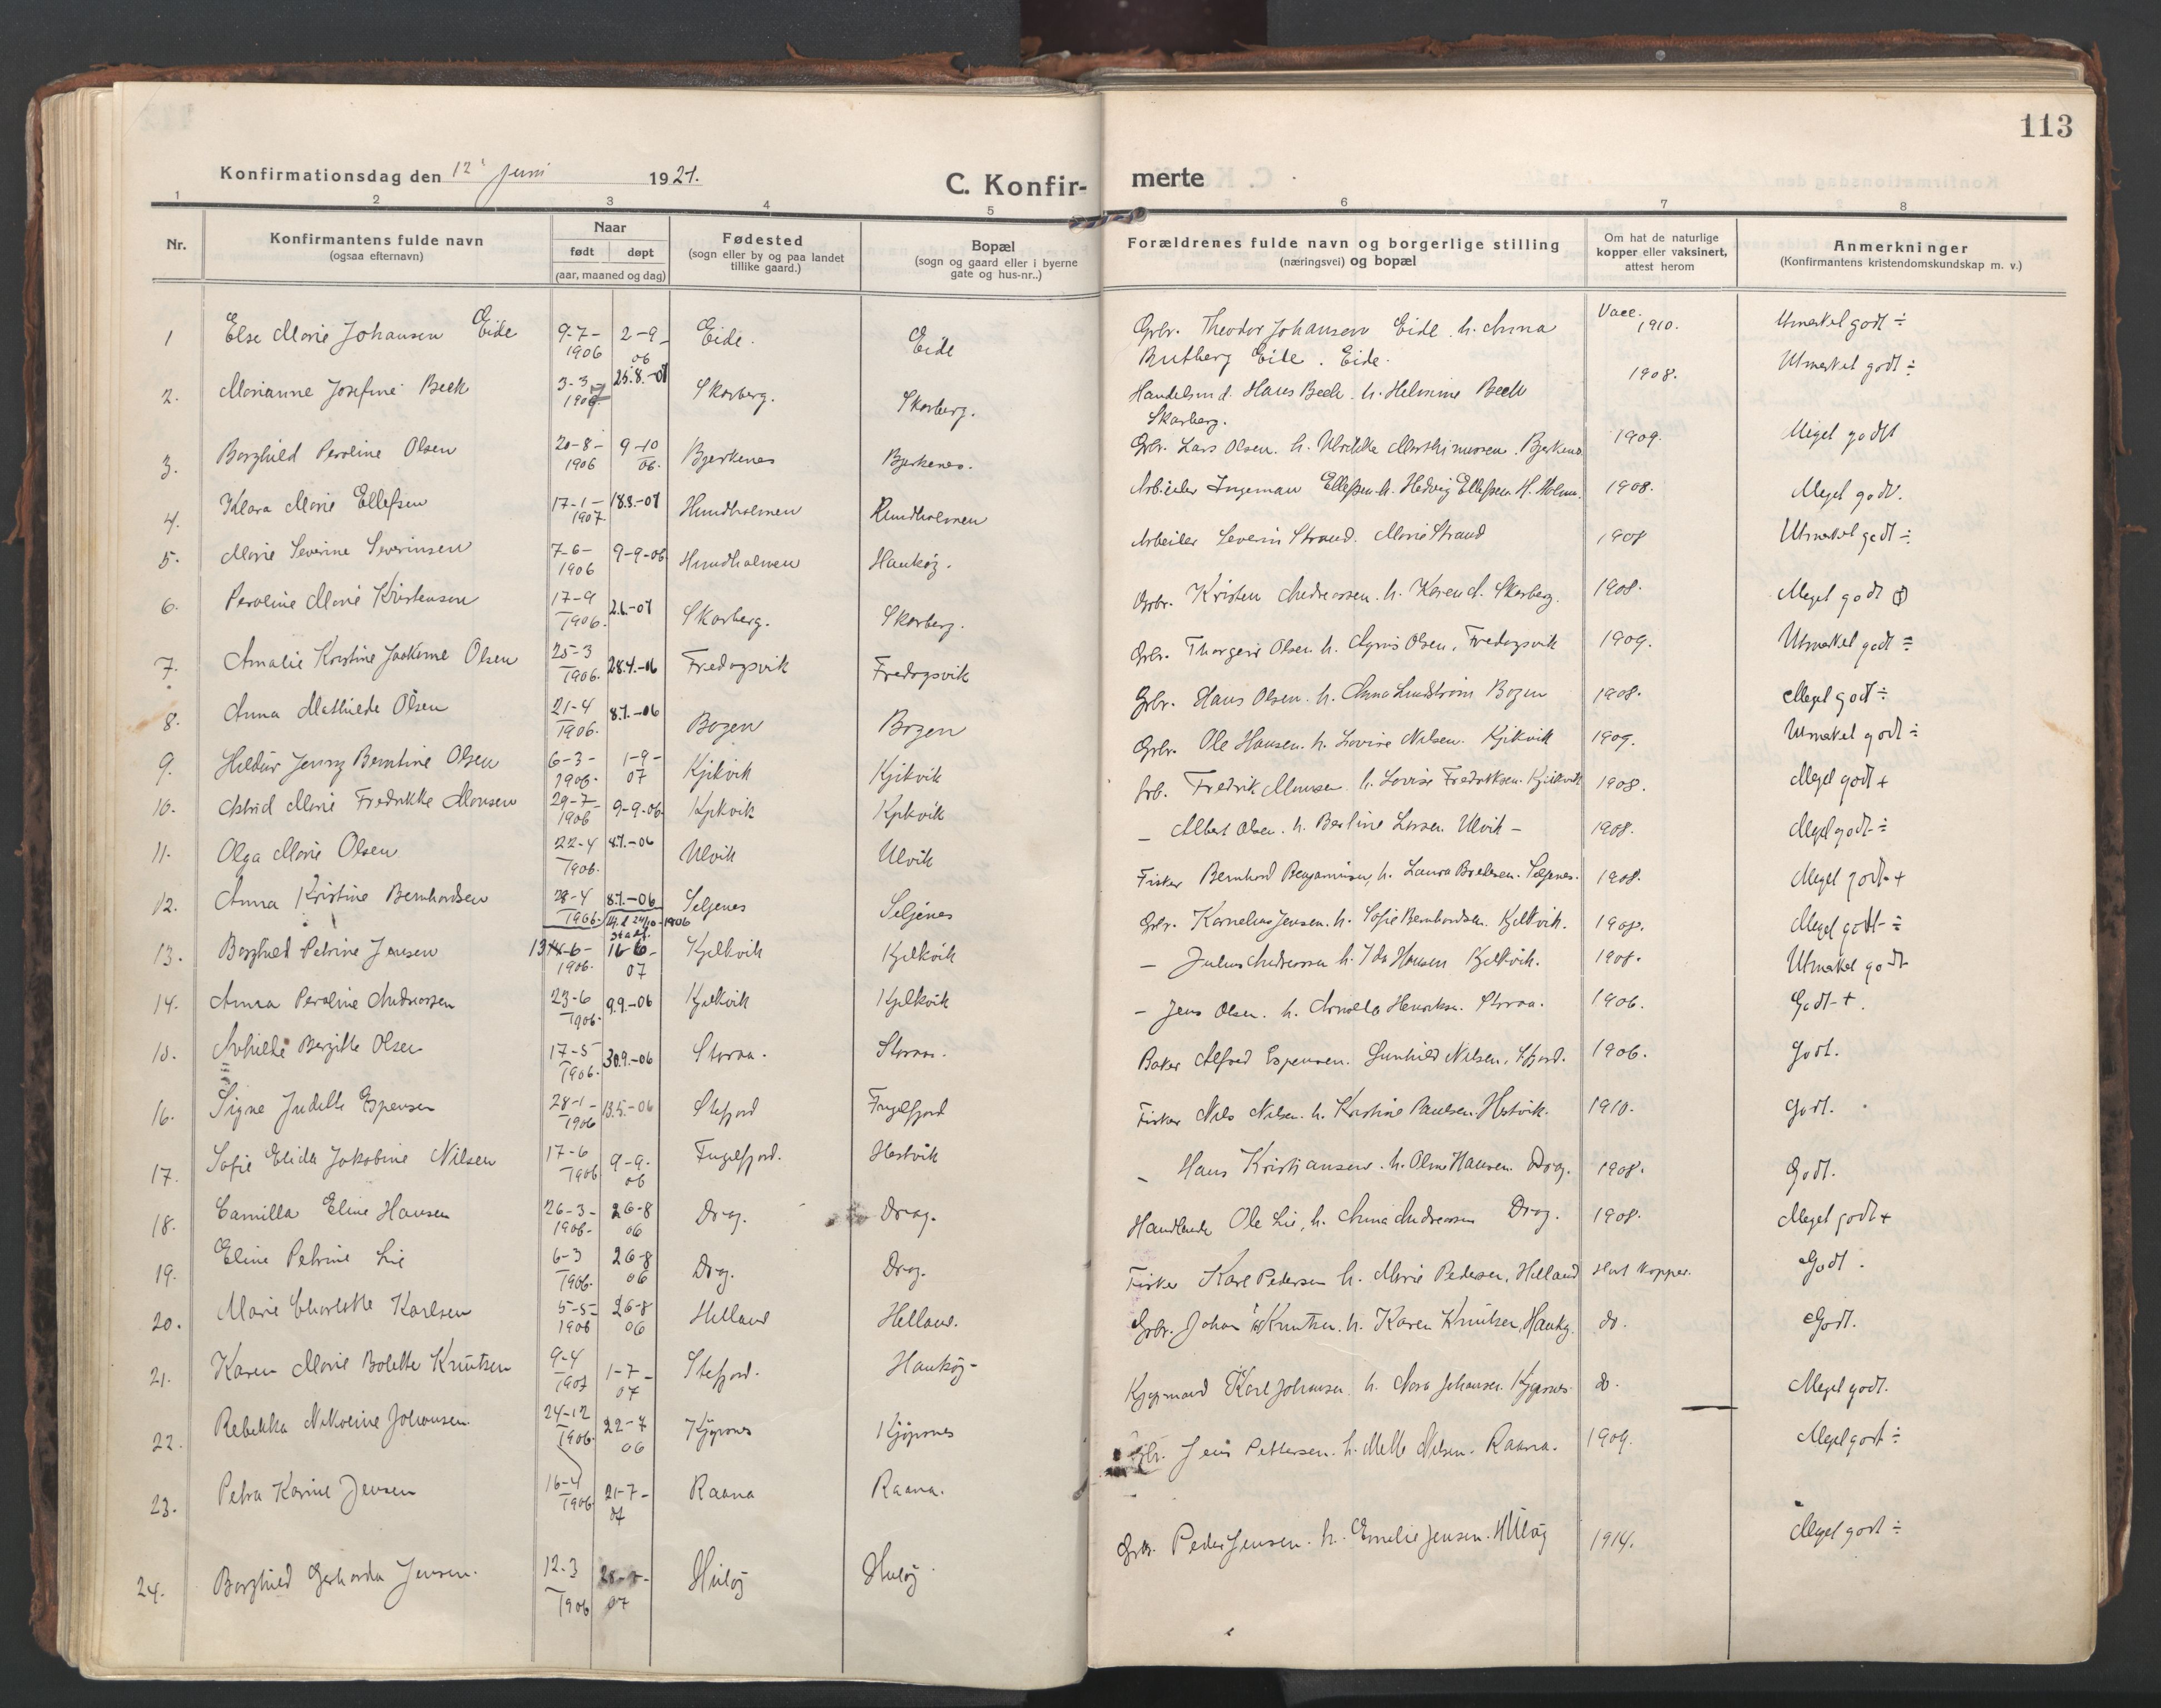 113
Konfirmationsdag den 12' Juni 1921. C. Konfir- merte
1 2 3 4 5 6 7 8
Nr. Konfirmantens fulde navn (ogsaa efternavn) Naar født døpt (aar, maaned og dag) Fødested (sogn eller by og paa landet tillike gaard.) Bopæl (sogn og gaard eller i byerne gate og hus-nr..) Forældrenes fulde navn og borgerlige stilling (næringsvei) og bopæl Om hat de naturlige kopper eller vaksinert, attest herom Anmerkninger (Konfirmantens kristendomskundskap m. v.)
1 Else Marie Johansen Eide 9-7-1906 2-9-06 Eide. Eide Grbr. Theodor Johansen Eide. h. Anna Eide. Eide. Vacc. 1910. Utmerket godt ÷
2. Marianne Josefine Beck 3-3 25.8.-07 Skarberg. Skarberg. Handelsmd. Hans Beck. h. Helmine Beck Skarberg. 1908. Utmerket godt ÷
3. Borghild Peroline Olsen 20-8-1906 9-10 06. Bjerkenes Bjerkenes. Grbr. Lars Olsen. h. Ulrikke Marthinussen. Bjerkenes 1909. Meget godt
4. Klara Marie Ellefsen 17-1-1907 18.8.-07 Hundholmen Hundholmen Arbeider Ingeman Ellefsen. h. Hedvig Ellefsen H. Holm. 1908. Meget godt.
5. Marie Severine Severinsen 7-6-1906 9-9-06 Hundholmen Haukøy. Arbeider Severin Strand. Marie Strand 1908 Utmerket godt ÷
6. Peroline Marie Kristensen 17-9 1906. Skarberg. Skarberg. Grbr. Kristen Andreassen. h. Karen A. Skarberg. 1908. Meget godt
7. Amalie Kristine Joakime Olsen 25-3 1906. Fredagsvik Fredagsvik Grbr. Thorgeir Olsen h. Agnes Olsen, Fredagsvik 1909. Utmerket godt ÷
8. Anna Mathilde Olsen 21-4 1906. 8.7.-06 Bogen Bogen Grbr. Hans Olsen. h. Anna Lundstrøm Bogen 1908. Meget godt ÷
9. Hildur Jenny Berntine Olsen 6-3-1906. 1-9-07 Kjikvik Kjikvik Grbr. Ole Hansen. h. Lovise Nilsen. Kjikvik 1909. Utmerket godt ÷
10. Astrid Marie Fredrikke Monsen 29-7-1906 9-9-06 Kjikvik Kjikvik Grb. Fredrik Monsen h. Lovise Fredriksen. Kjikvik 1908. Meget godt +
11. Olga Marie Olsen 22-4 1906. 8.7.-06 Ulvik Ulvik – Albert Olsen. h. Bertine Larsen. Ulvik – 1908. Meget godt ÷
12. Anna Kristine Bernhardsen 28-4 1906. 8.7.-06 Seljenes Seljenes Fisker Bernhard Benjaminsen, h. Laura Seljenes. 1908. Meget godt +
13. Borghild Petrine Jensen 13 6-1906. 16-6-07 Kjelkvik Kjelkvik Grbr. Kornelius Jensen. h. Sofie Bernhardsen. Kjelkvik. 1908. Meget godt ÷
14. Anna Peroline Andreassen 23-6 1906. 9.9.-06 Kjelkvik Kjelkvik – Julius Andreassen h. Ida Hansen Kjelkvik. 1908. Utmerket godt
15. Bergitte Olsen 17-5 1906. 30.9.-06 Storaa. Storaa. – Jens Olsen. h. Henriksen. Storaa. 1906. Godt +.
16. Signe Judelle Espensen 28-1-1906 13.5.-06 Stefjord Fuglefjord Baker Alfred Espensen. Gunhild Nilsen, Sfjord. 1906. Godt.
17. Sofie Elida Jakobine Nilsen 17-6 1906 9-9-06 Fuglefjord. Hestvik Fisker Nils Nilsen. h. Kristine Paulsen. Hestvik. 1910. Godt.
18. Camilla Eline Hansen 26-3-1906- 26-8 06 Drag. Drag. – Hans Kristiansen. h. Oline Hansen. Drag. 1908. Godt.
19. Eline Petrine Lie 6-3 1906. 26-8 06 Drag. Drag. Handlende Ole Lie, h. Anna Andreassen Drag. 1908. Meget godt +
20. Marie Charlotte Karlsen 5-5-1906 26-8 06 Helland Helland. Fisker Karl Pedersen h. Marie Pedersen, Helland Hat kopper. Godt.
21. Karen Marie Bolette Knutsen 9-4 1907 1-7-07 Stefjord. Haukøy- Grbr. Johan Knutsen. h. Karen Knutsen, Haukøy. do. Godt.
22. Rebekka Nikoline Johansen. 24-12 1906. 22-7 06 Kjøpsnes Kjøpsnes Kjøpmand Karl Johansen. h. Nora Johansen. Kjøpsnes. do. Meget godt.
23. Petra Karine Jensen 16-4 1906. 21-7-07 Raana Raana. Grbr. Jens Pettersen. h. Mette Nilsen. Raana. 1909. Meget godt ÷
24. Borghild Gerharda Jensen. 12-3 1906 07 Huløy Huløy Grbr. Peder Jensen. h. Emelie Jensen. Huløy 1914. Meget godt ÷